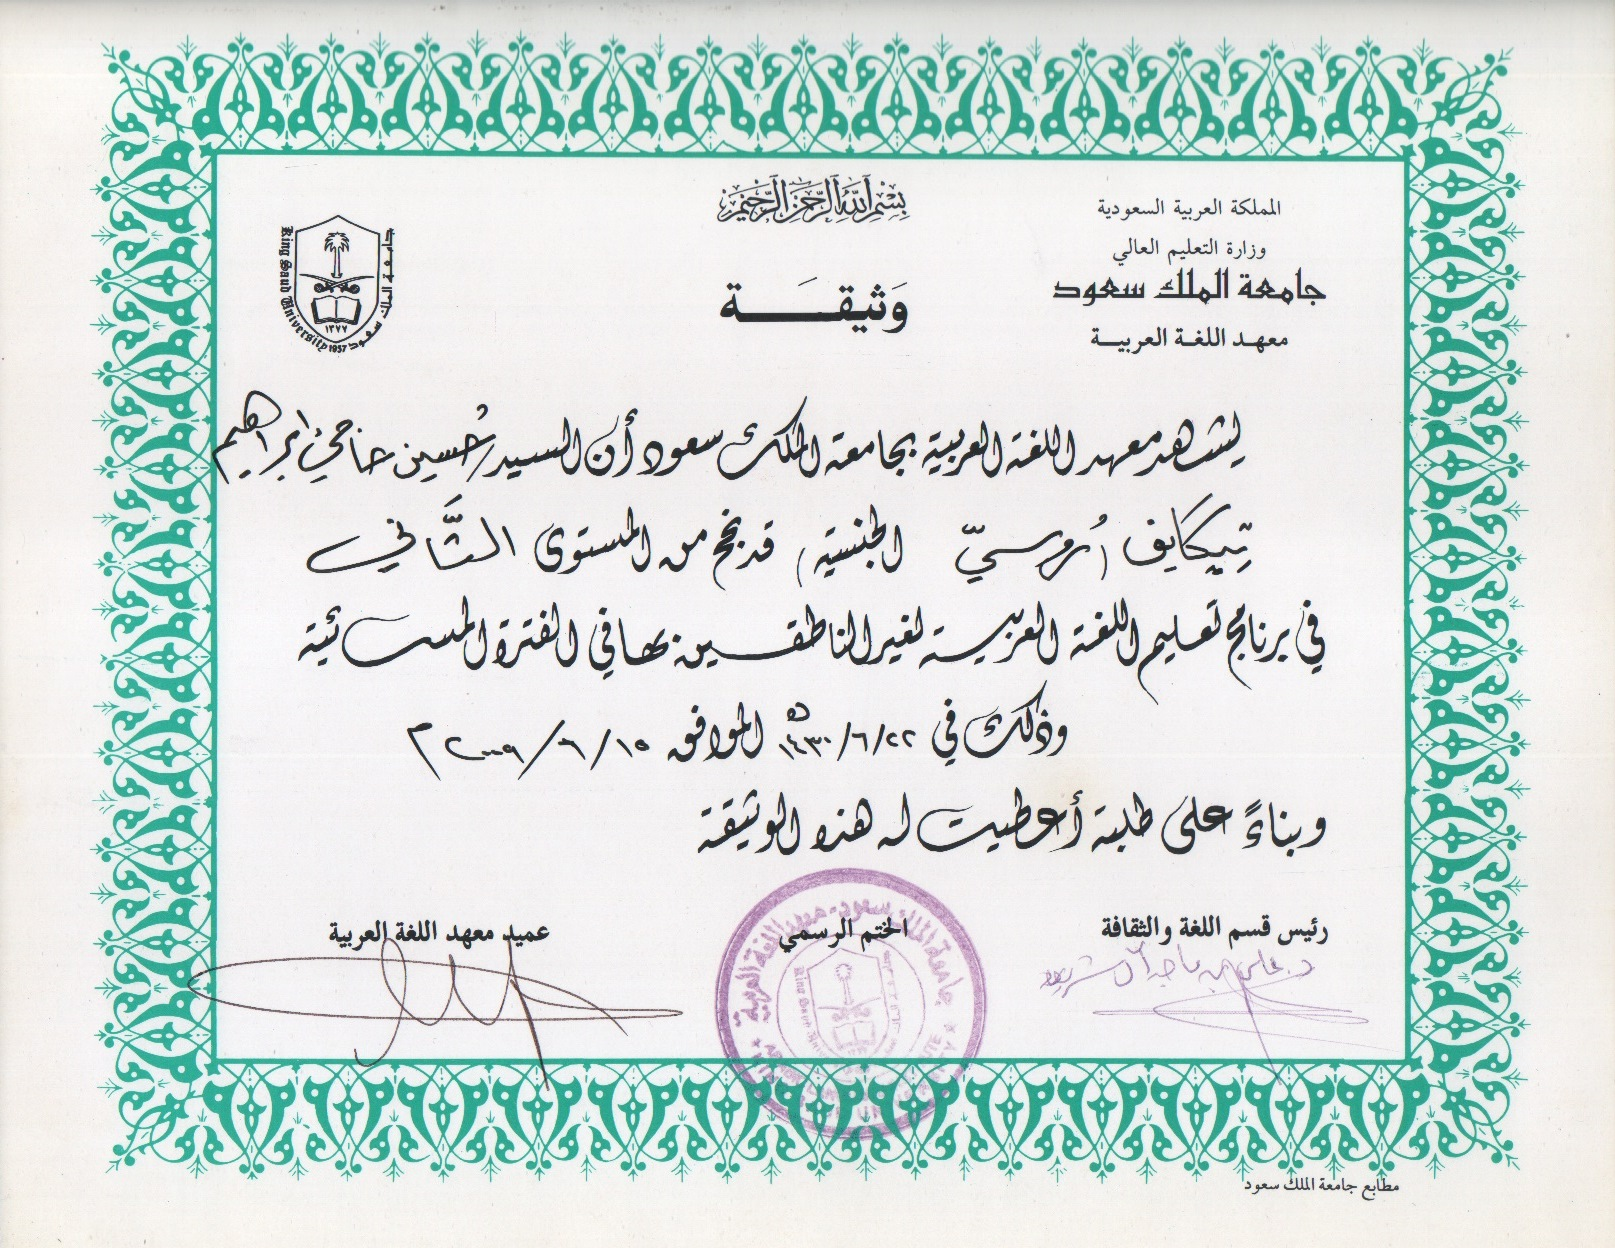 بِسْمِ اللَّهِ الرَّحْمَنِ الرَّحِيمِ
المملكة العربية السعودية
وزارة التعليم العالي
جامعة الملك سعود
معهد اللغة العربية
وَثيقَة
جامعة الملك سعود
King Saud University 1957
١٣٧٧
يشهد معهد اللغة العربية بجامعة الملك سعود أن السيد/ حُسين حاجي ابراهيم
تيكايف (رُوسيّ الجنسية) قد نجح من المستوى الثَّاني
في برنامج تعليم اللغة العربية لغير الناطقين بها في الفترة المسائية
وذلك في ٢٢/٦/١٤٣٠هـ الموافق ١٥/٦/٢٠٠٩م
وبناءً على طلبة أعطيت له هذه الوثيقة
رئيس قسم اللغة والثقافة
الختم الرسمي
عميد معهد اللغة العربية
جامعة الملك سعود - معهد اللغة العربية
مطابع جامعة الملك سعود